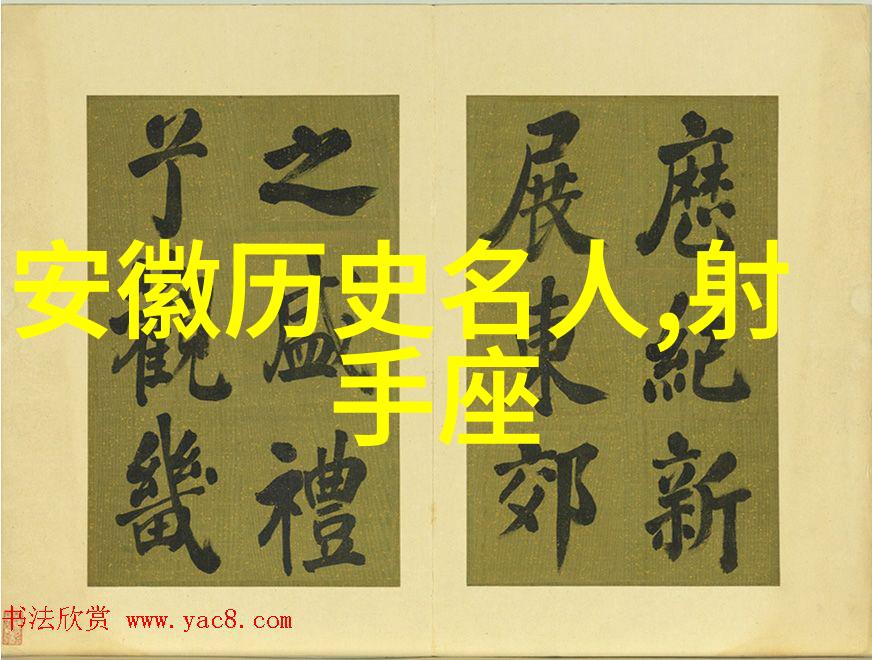 安徽历史名人,射
手座
歷紀新
展東郊
之盛禮
觀畿
书法欣赏 www.yac8.com